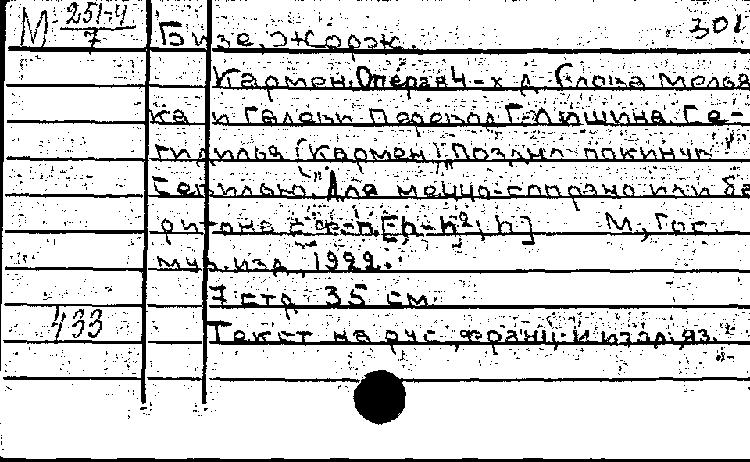 М 251-4/7 Бизе, Жорж. 301
Кармен. Опера в 4-х д. Слова Мелья
ка и Галеви Перевод Г. Лишина. Се-
гидилья (Кармен) "Поздно покинув
Севилью". Для меццо-сопрано или ба
ритона с ф-п. [h-h², h] М., Гос.
муз. изд., 1922.
7 стр. 35 см.
433 Текст на рус., франц. и итал. яз.